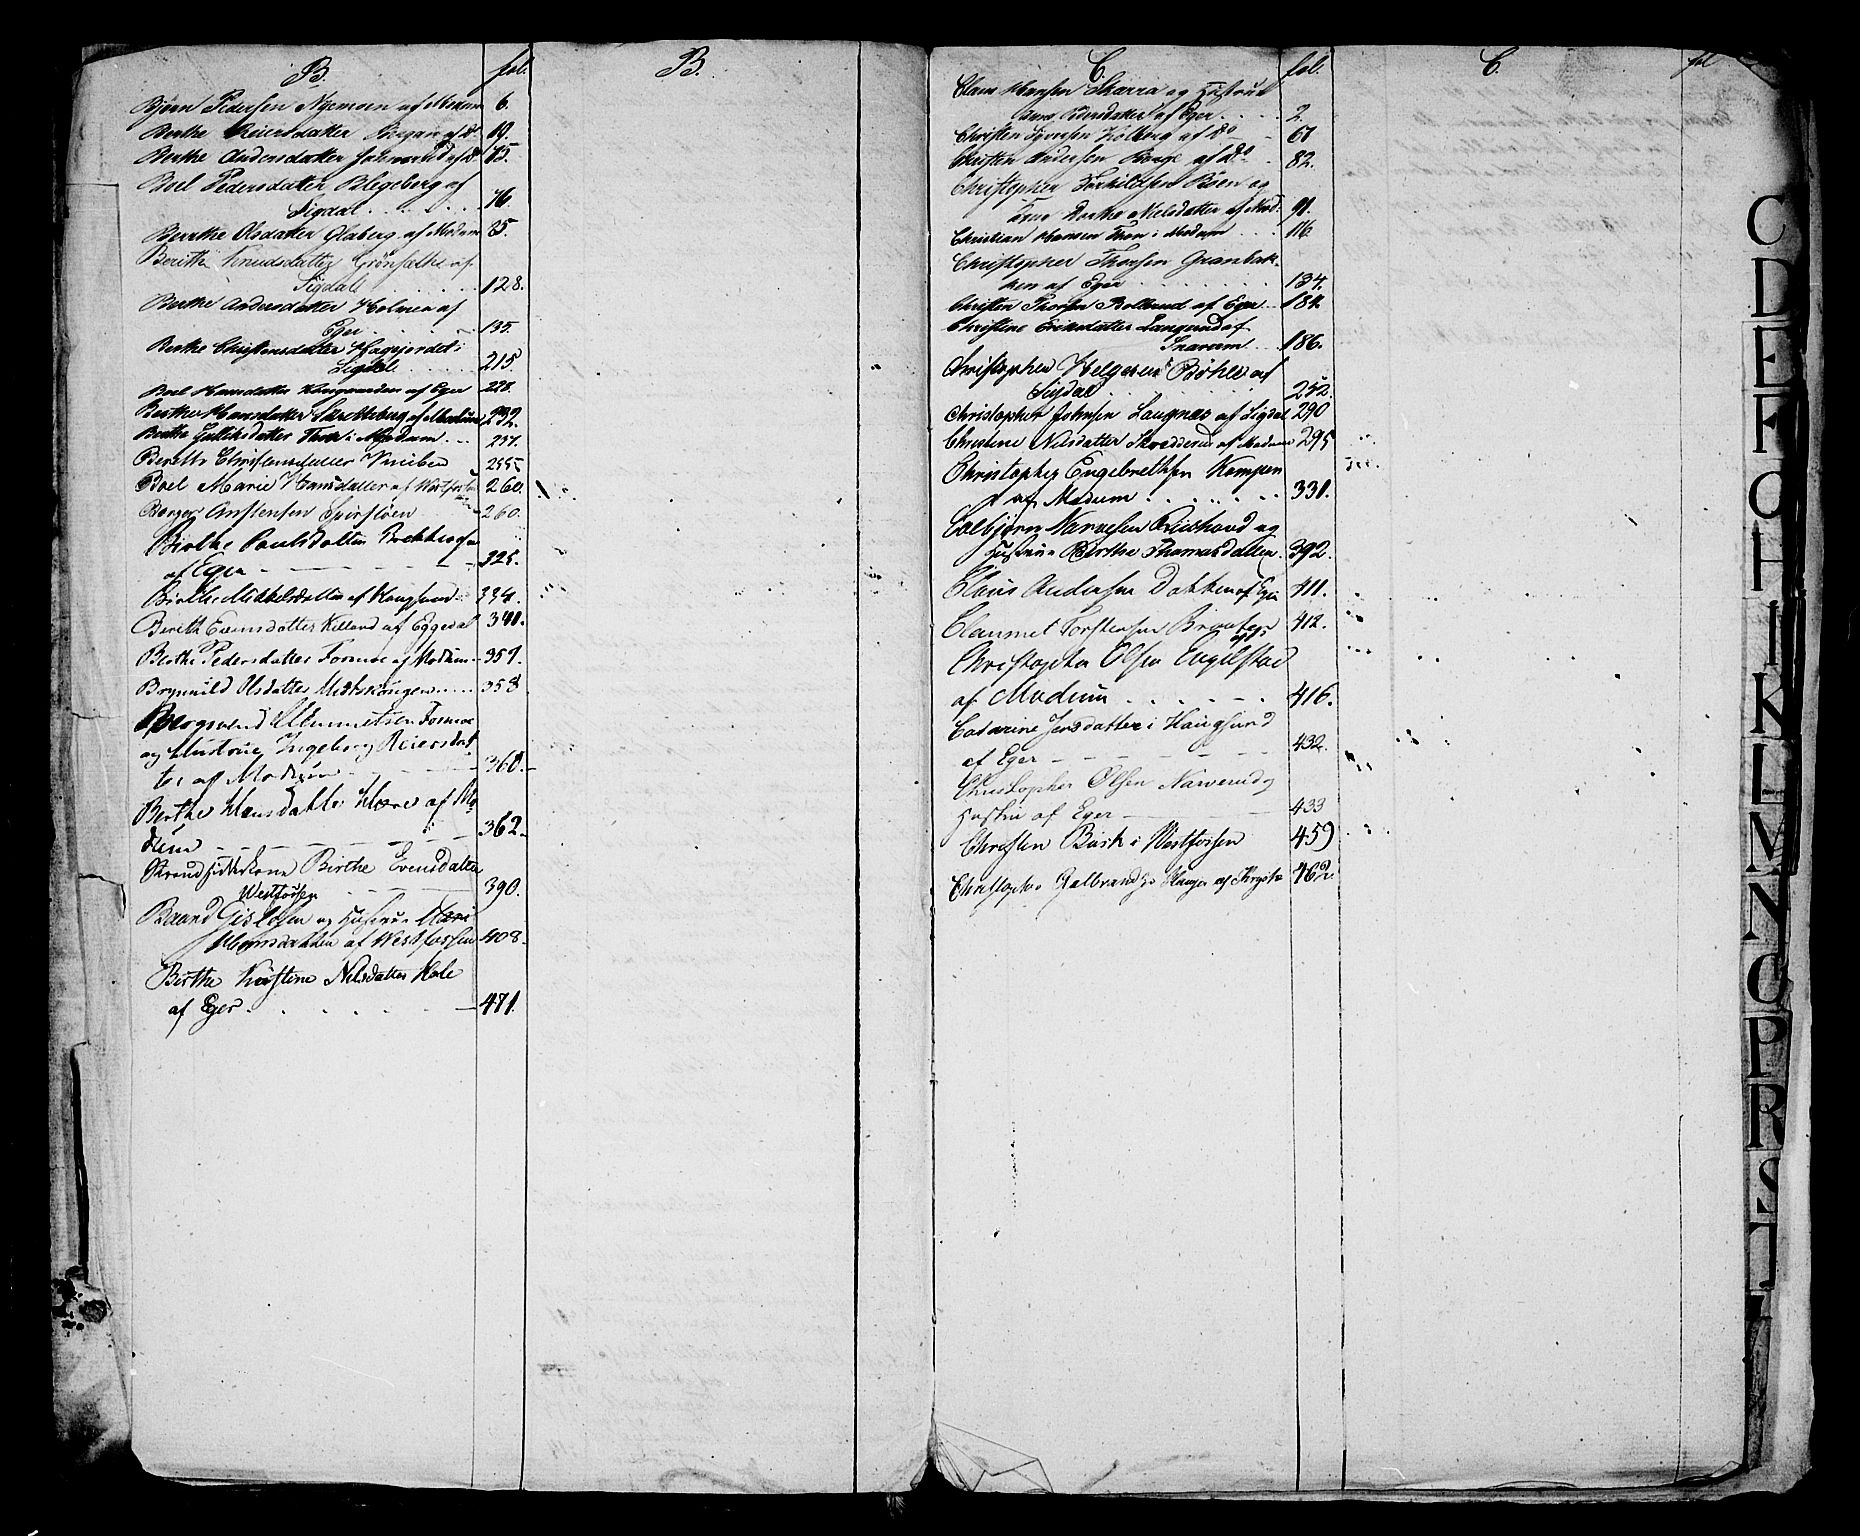 B. fol. B.
Bjørn Pedersen Nyemoen af Modum 6.
Berthe Reiersdatter af do 19.
Berthe Andersdatter af do 75.
Boel Pedersdatter Blegeberg af
Sigdal 76.
Berthe Olsdatter Glaberg af Modum 85.
Berith Knudsdatter af
Sigdal 128.
Berthe Andersdatter Holmen af
Eger 135.
Berthe Christensdatter Hagejordet i
Sigdal 215.
Boel Hansdatter af Eger 228.
Berthe Hansdatter af Modum 232.
Berthe Gulliksdatter i Modum 237.
Bereth Christensdatter 255
Boel Marie Hansdatter af Westfossen 260.
Berger 260.
Birthe Paulsdatter
af Eger 325.
Birthe Mikkelsdatter af Haugsund 334.
Bereth Evensdatter Killand af Eggedal 340.
Berthe Pedersdatter Formoe af Modum 357.
Brynnild Olsdatter 358
Bergsvend Formoe
og Hustrue Ingeborg Reiersdat
ter af Modum 360.
Berthe Hansdatter Hære af Mo
dum 362.
Birthe Evensdatter
Westfossen 390.
Baard Gislesen og Hustrue Mari
af Westfossen 408.
Birthe Kirstine Nilsdatter Hole
af Eger 471.
C. fol. C. fol
Claus Hansen Skarra og Hustrue
Pedersdatter af Eger 2.
Christen Iversen Kolberg af do 67
Christen Andersen af do 82.
Christopher Torkildsen og
Dorthe Nielsdatter af Mod. 91.
Christian Hansen i Modum 116.
Christopher Thorsen Granbak-
ken af Eger 134.
Christen Thorsen af Eger 184.
Christine Eriksdatter Langerud af
Snarum 186.
Christopher Helgesen Bøhle af
Sigdal 252.
Christopher Johnsen Langnæs af Sigdal 290
Christine Nilsdatter af Modum 295
Christopher Engebrethsen Kampen
af Modum 331.
Colbjørn og
Hustrue Berthe Thomasdatter 392.
Claus Andersen Dokken af Eger 411.
Torstensen 412.
Christopher Olsen Engelstad
af Modum 416.
Catarine Jensdatter i Haugsund
af Eger 432.
Christopher Olsen Narverud og
Hustru af Eger 433
Christen Busk i Westfossen 459
Christopher Gulbrandsen 462
C
D
E
F
G
H
I
K
L
M
N
O
P
R
S
T